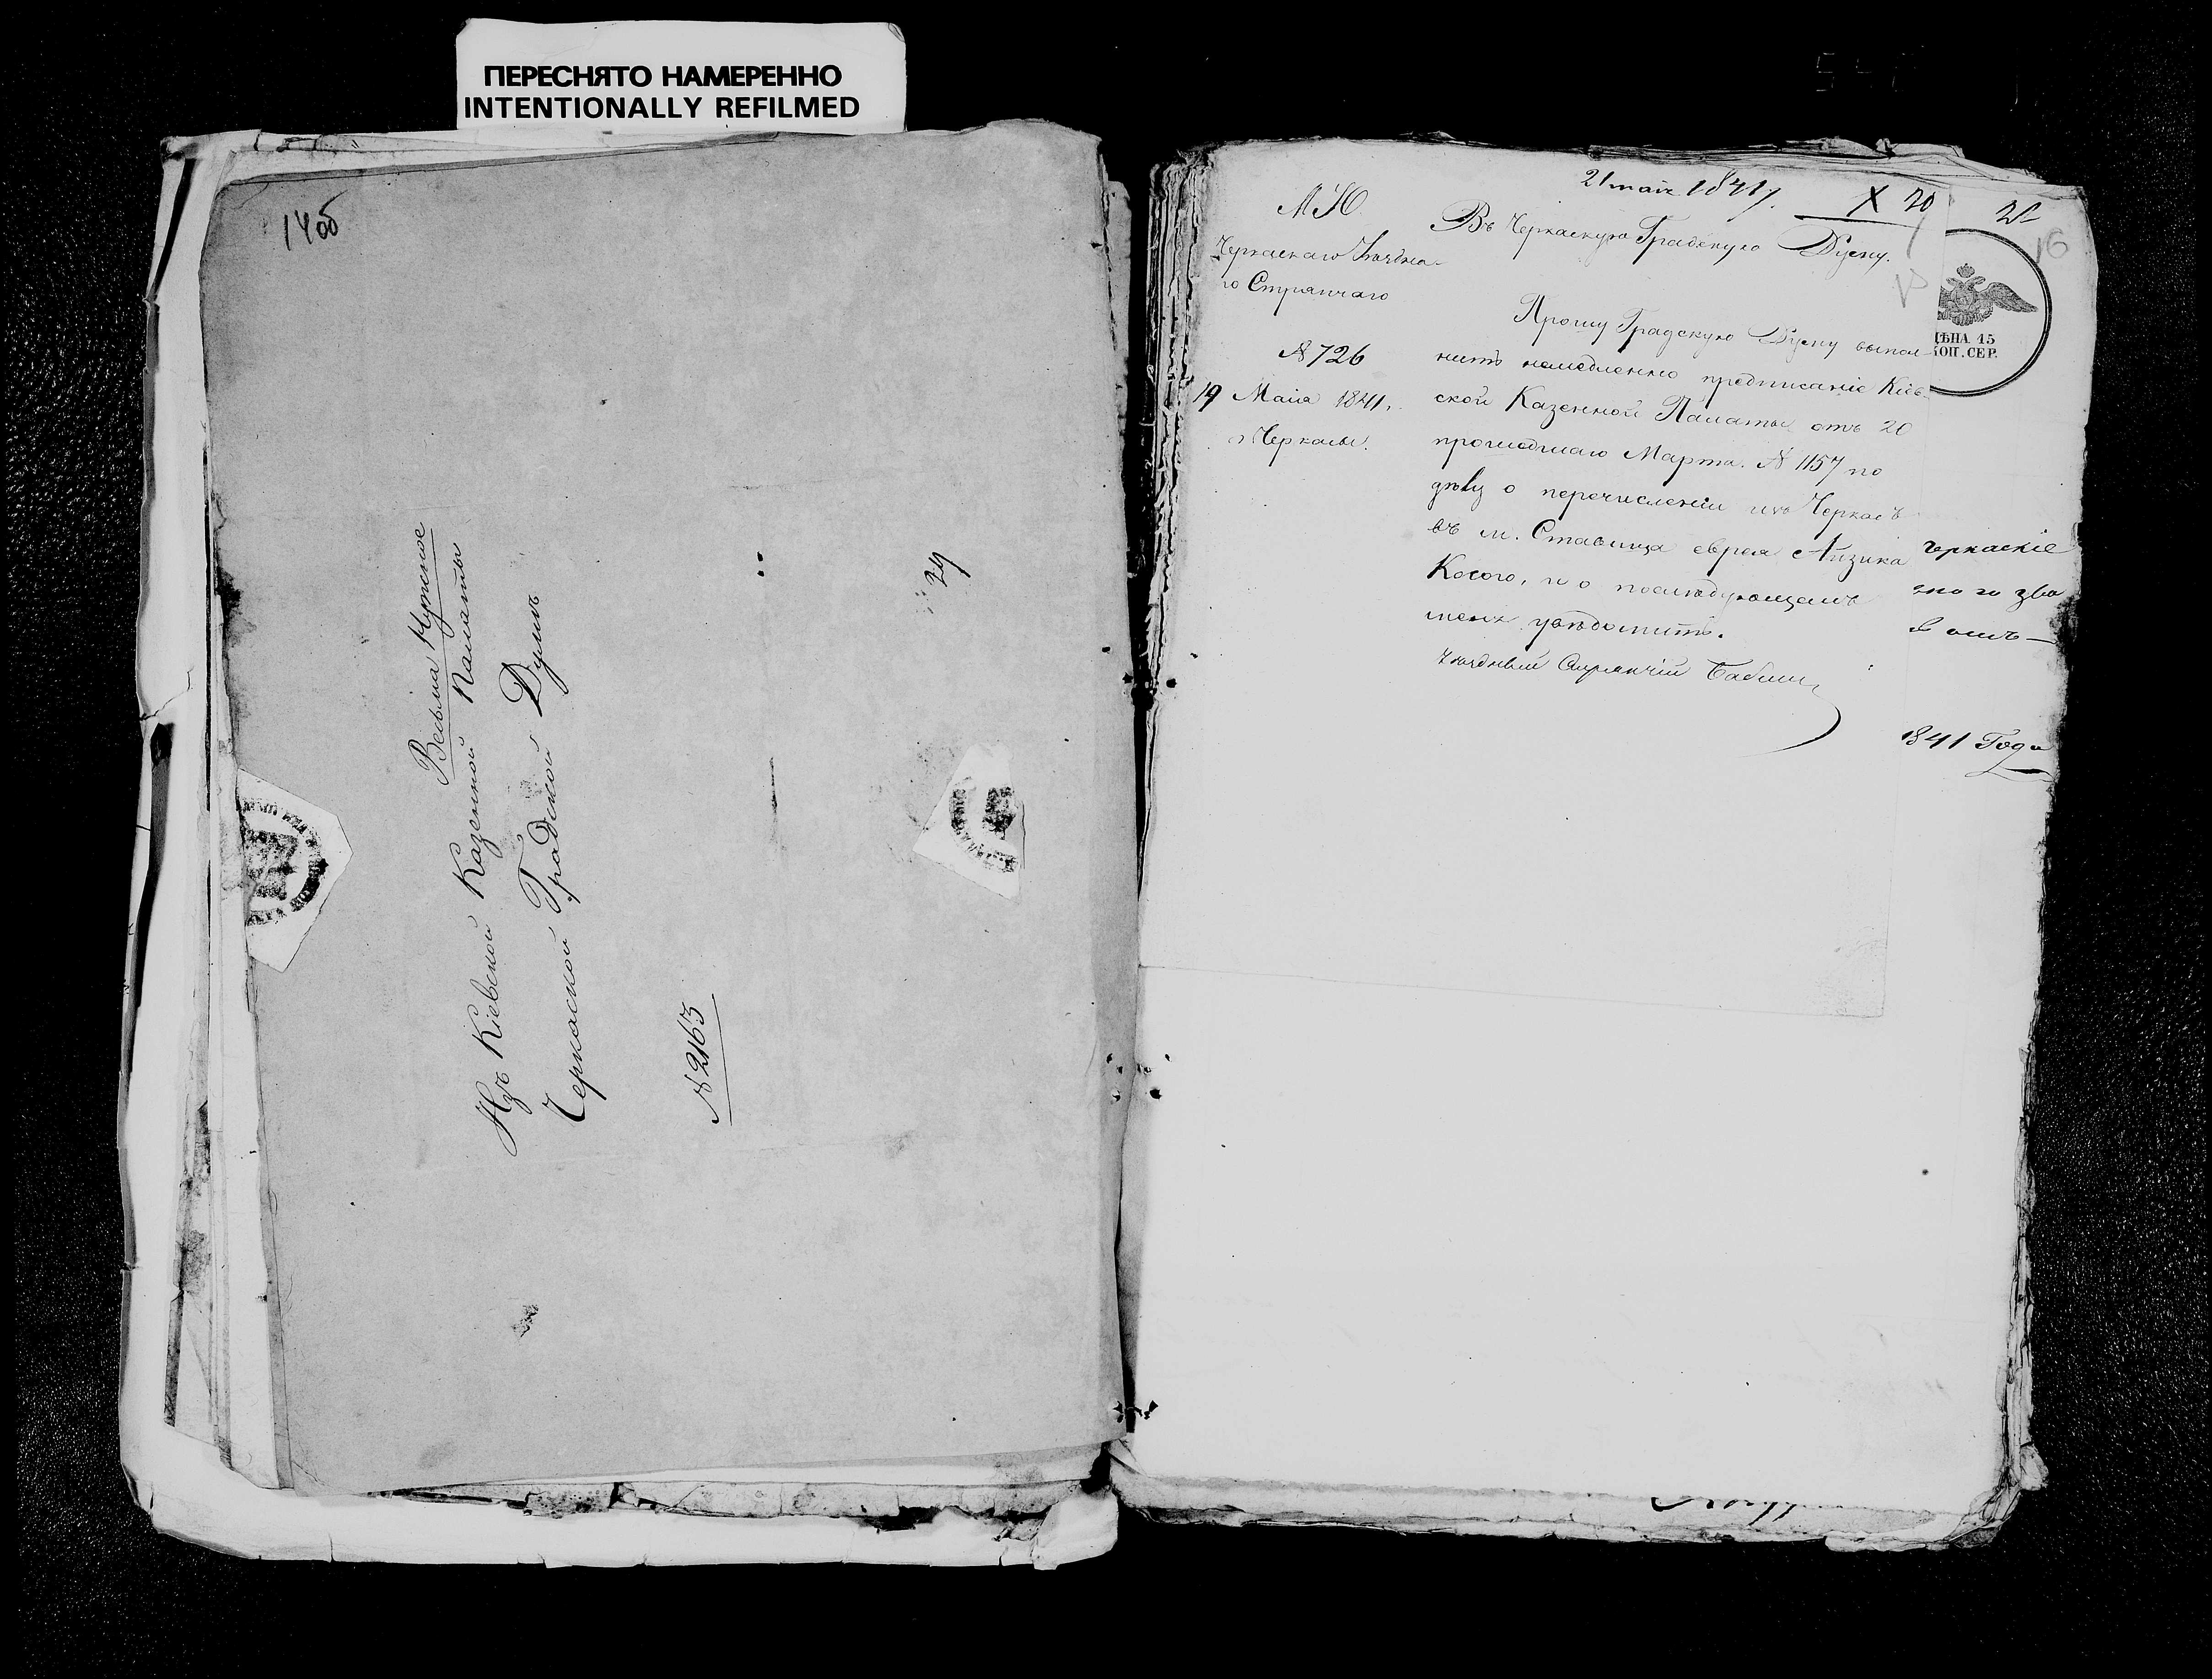 ПЕРЕСНЯТО НАМЕРЕННО
INTENTIONALLY REFILMED
14об
Весьма Нужное
Изъ Кіевской Казенной Палаты
Черкаской Градской Думѣ
№ 2163
24
21 маія 1841 г.
X 20
16
М Ю.
Черкаскаго Уѣздна-
го Стряпчаго
№ 726
19 Маія 1841.
г Черкасы.
Въ Черкаскую Градскую Думу.
Прошу Градскую Думу выпол-
нить немедленно предписаніе Кіев-
ской Казенной Палаты отъ 20
прошедшаго Марта. № 1157 по
дѣлу о перечисленіи изъ Черкасъ
въ м. Ставища еврея Айзика
Косого, и о послѣдующемъ
меня увѣдомить.
Уѣздный Стряпчій
ЦѢНА 15
КОП. СЕР.
Черкаскіе
1841 Года